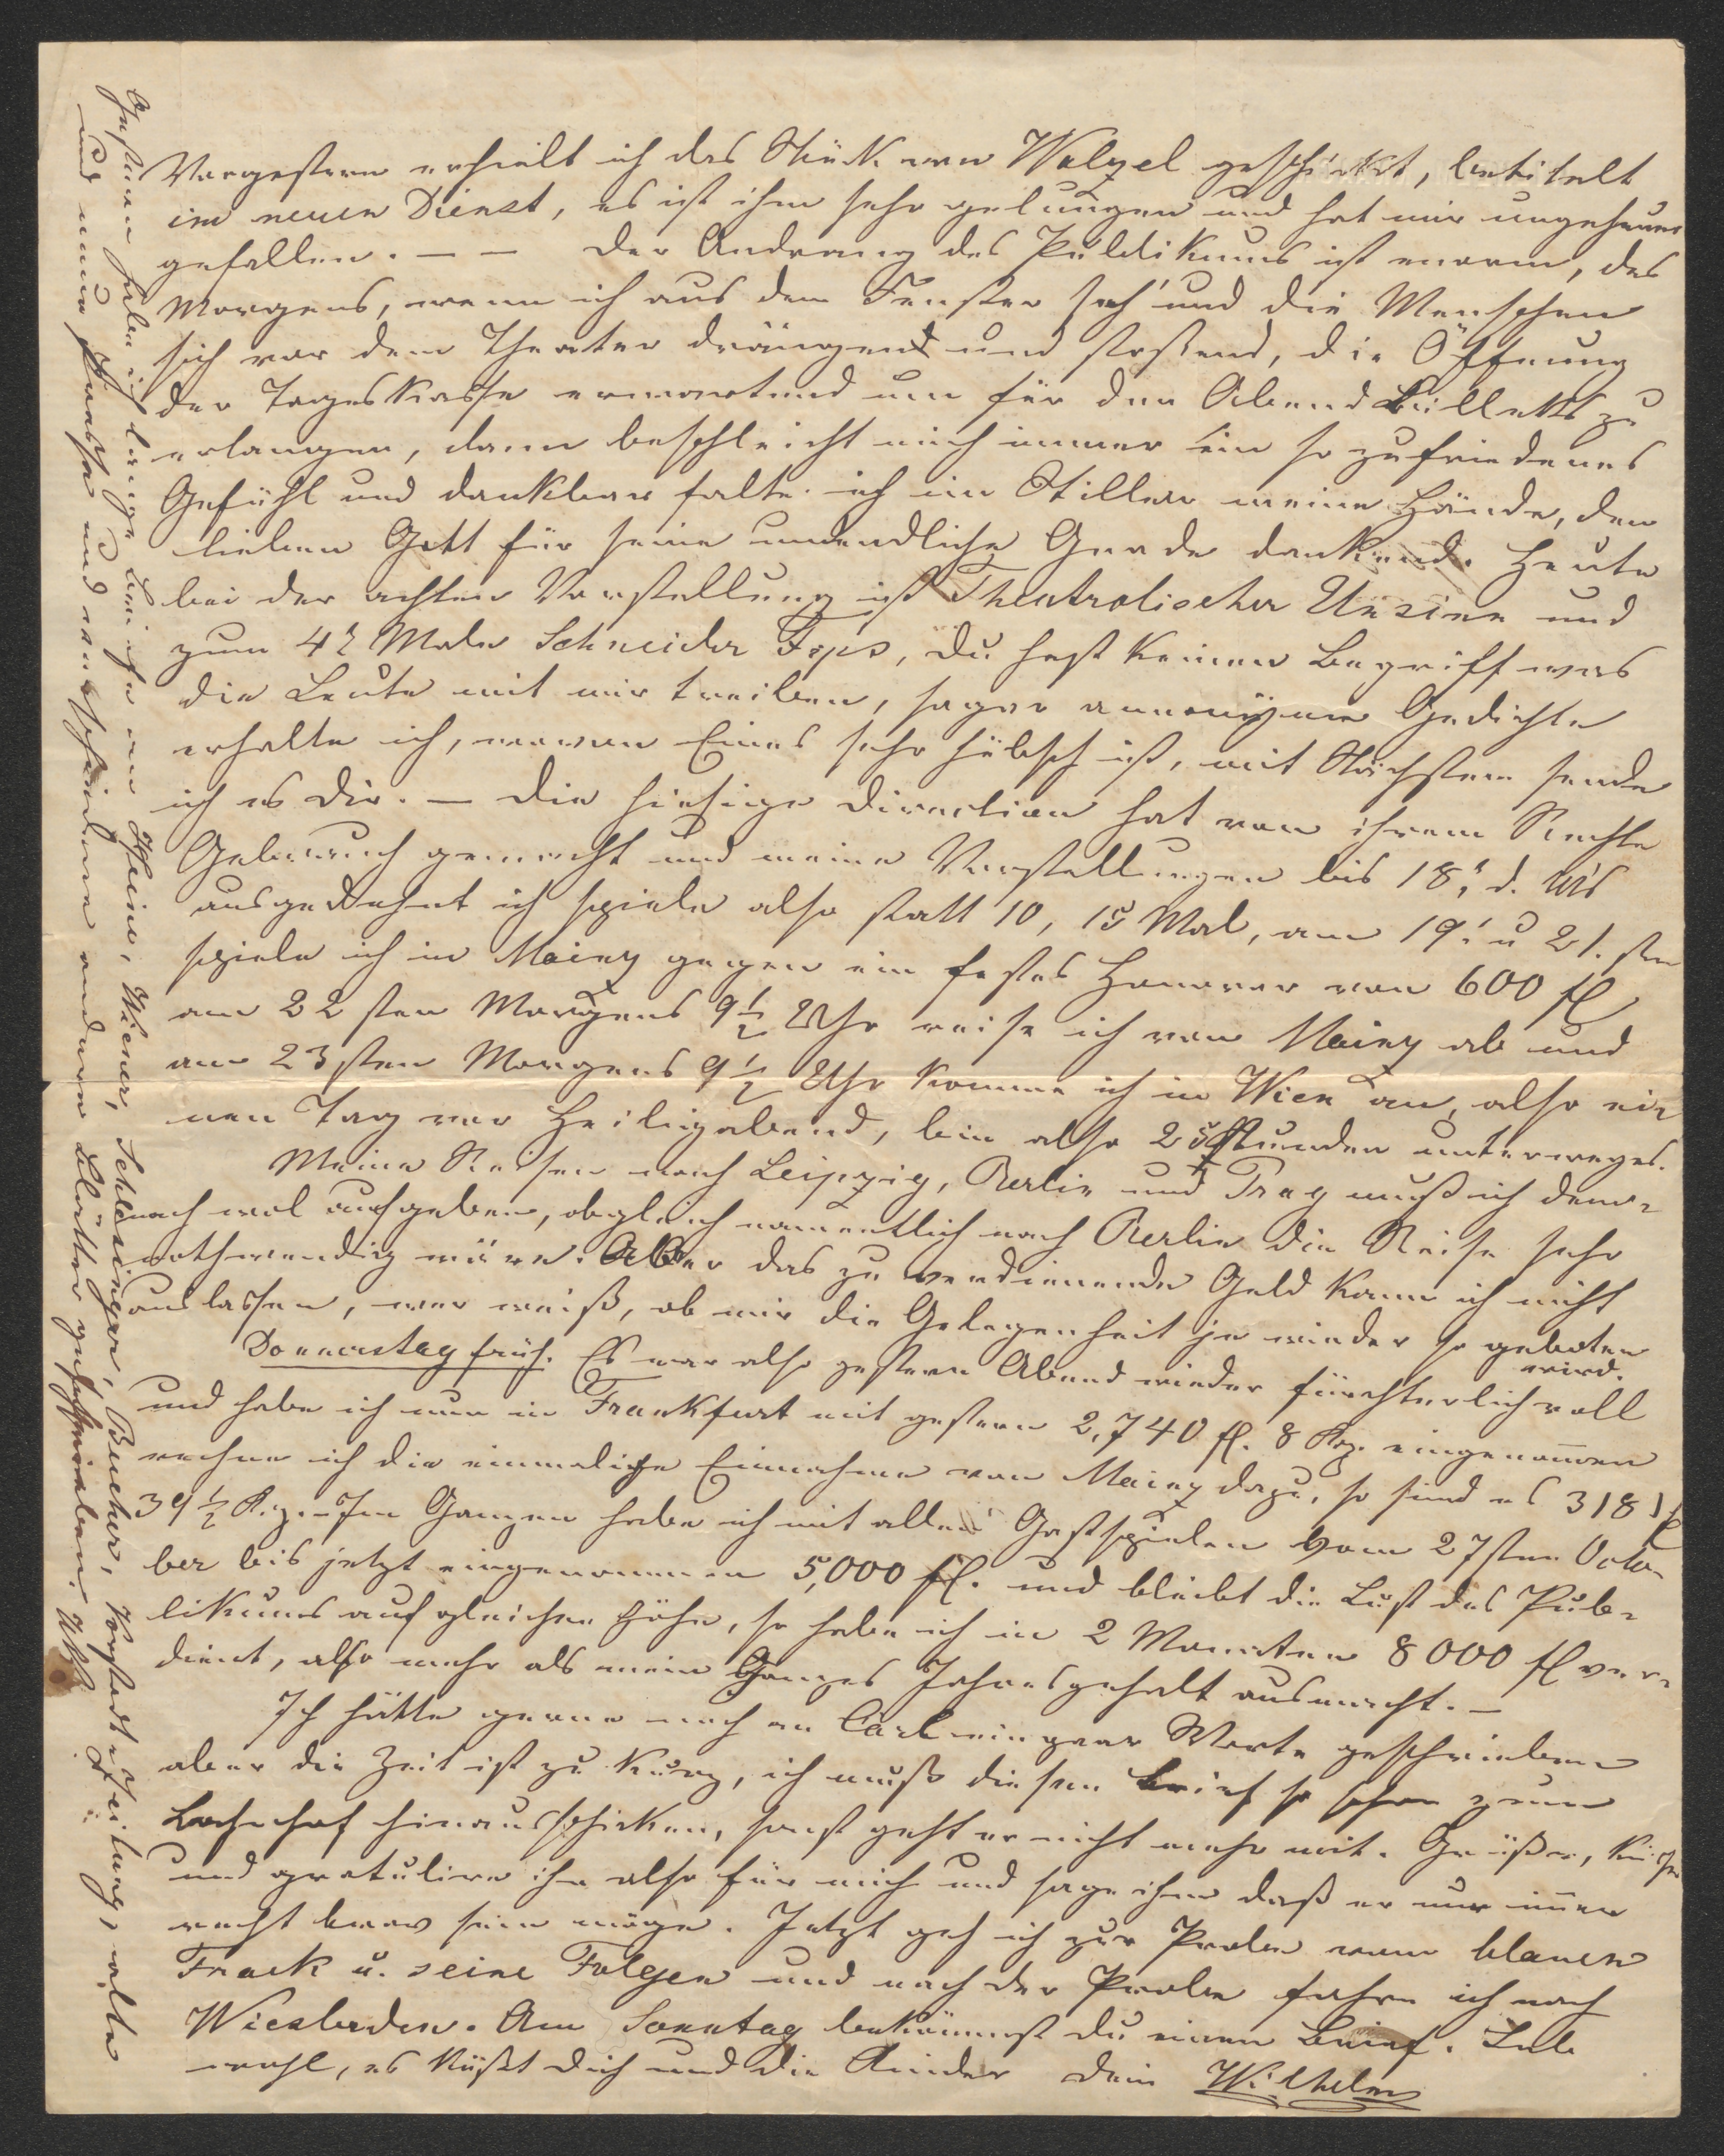 Vorgestern erhielt ich das Stück von Walzel geschickt, betitelt
im neuen Dienst, es ist ihm sehr gelungen und hat mir ungeheuer
gefallen. — — Der Andrang des Publikums ist enorm, des
Morgens, wenn ich aus dem Fenster seh' und die Menschen
sich vor dem Theater drängend und stoßend, die Öffnung
der Tageskasse erwartend um für den Abend Billetts zu
erlangen, dann beschleicht mich immer ein so zufriedenes
Gefühl und dankbar falte ich im Stillen meine Hände, dem
lieben Gott für seine unendliche Gnade dankend. Heute
bei der achten Vorstellung ist Theatralischer Unsinn und
zum 4t Male Schneider Fips, Du hast keinen Begriff was
die Leute mit mir treiben, sogar annonÿme Gedichte
erhalte ich, wovon Eines sehr hübsch ist, mit Nächstem sende
ich es Dir. — Die hiesige Direction hat von ihrem Rechte
Gebrauch gemacht und meine Vorstellungen bis 18t d. Mts
ausgedehnt ich spiele also statt 10, 15 Mal, am 19. u 21. sten
spiele ich in Mainz gegen ein festes Honorar von 600 fl
am 22 sten Morgens 9½ Uhr reise ich von Mainz ab und
am 23sten Morgens 9½ Uhr komme ich in Wien an, also ei-
nen Tag vor Heiligabend, bin also 25 Stunden unterweges.
Meine Reisen nach Leipzig, Berlin und Prag muß ich dem-
nach wol aufgeben, obgleich namentlich nach Berlin die Reise sehr
nothwendig wäre. Aber das zu verdienende Geld kann ich nicht
auslassen, wer weiß, ob mir die Gelegenheit je wieder so geboten
wird.
Donnerstag früh. Es war also gestern Abend wieder fürchterlich voll
und habe ich nun in Frankfurt mit gestern 2,740 fl. 8 Krz. eingenommen
rechne ich die einmalige Einnahme von Mainz dazu, so sind es 3181 fl
39½ Krz. — Im Ganzen habe ich mit allen Gastspielen vom 27sten Octo-
ber bis jetzt eingenommen 5,000 fl. und bleibt die Lust des Pub-
likums auf gleicher Höhe, so habe ich in 2 Monaten 8000 fl ver-
dient, also mehr als mein Ganzes Jahresgehalt ausmacht. —
Ich hätte gerne noch an Carl ein paar Worte geschrieben
aber die Zeit ist zu kurz, ich muß diesen Brief so schon zum
Bahnhof hinausschicken, sonst geht er nicht mehr mit. Grüße, küsse
und gratulire ihn also für mich und sage ihm daß er nur immer
recht brav sein möge. Jetzt geh ich zur Probe vom blauen
Frack u. seine Folgen und nach der Probe fahre ich nach
Wiesbaden. Am Sonntag bekömmst Du einen Brief. Leb
wohl, es küßt Dich und die Kinder Dein Wilhelm
Gestern habe ich lange Briefe an Heine, Wiener, Schlesinger, Bucher, Vorstadt Zeitung, alte
und neue Presse und verschiedene andere Blätter geschrieben.